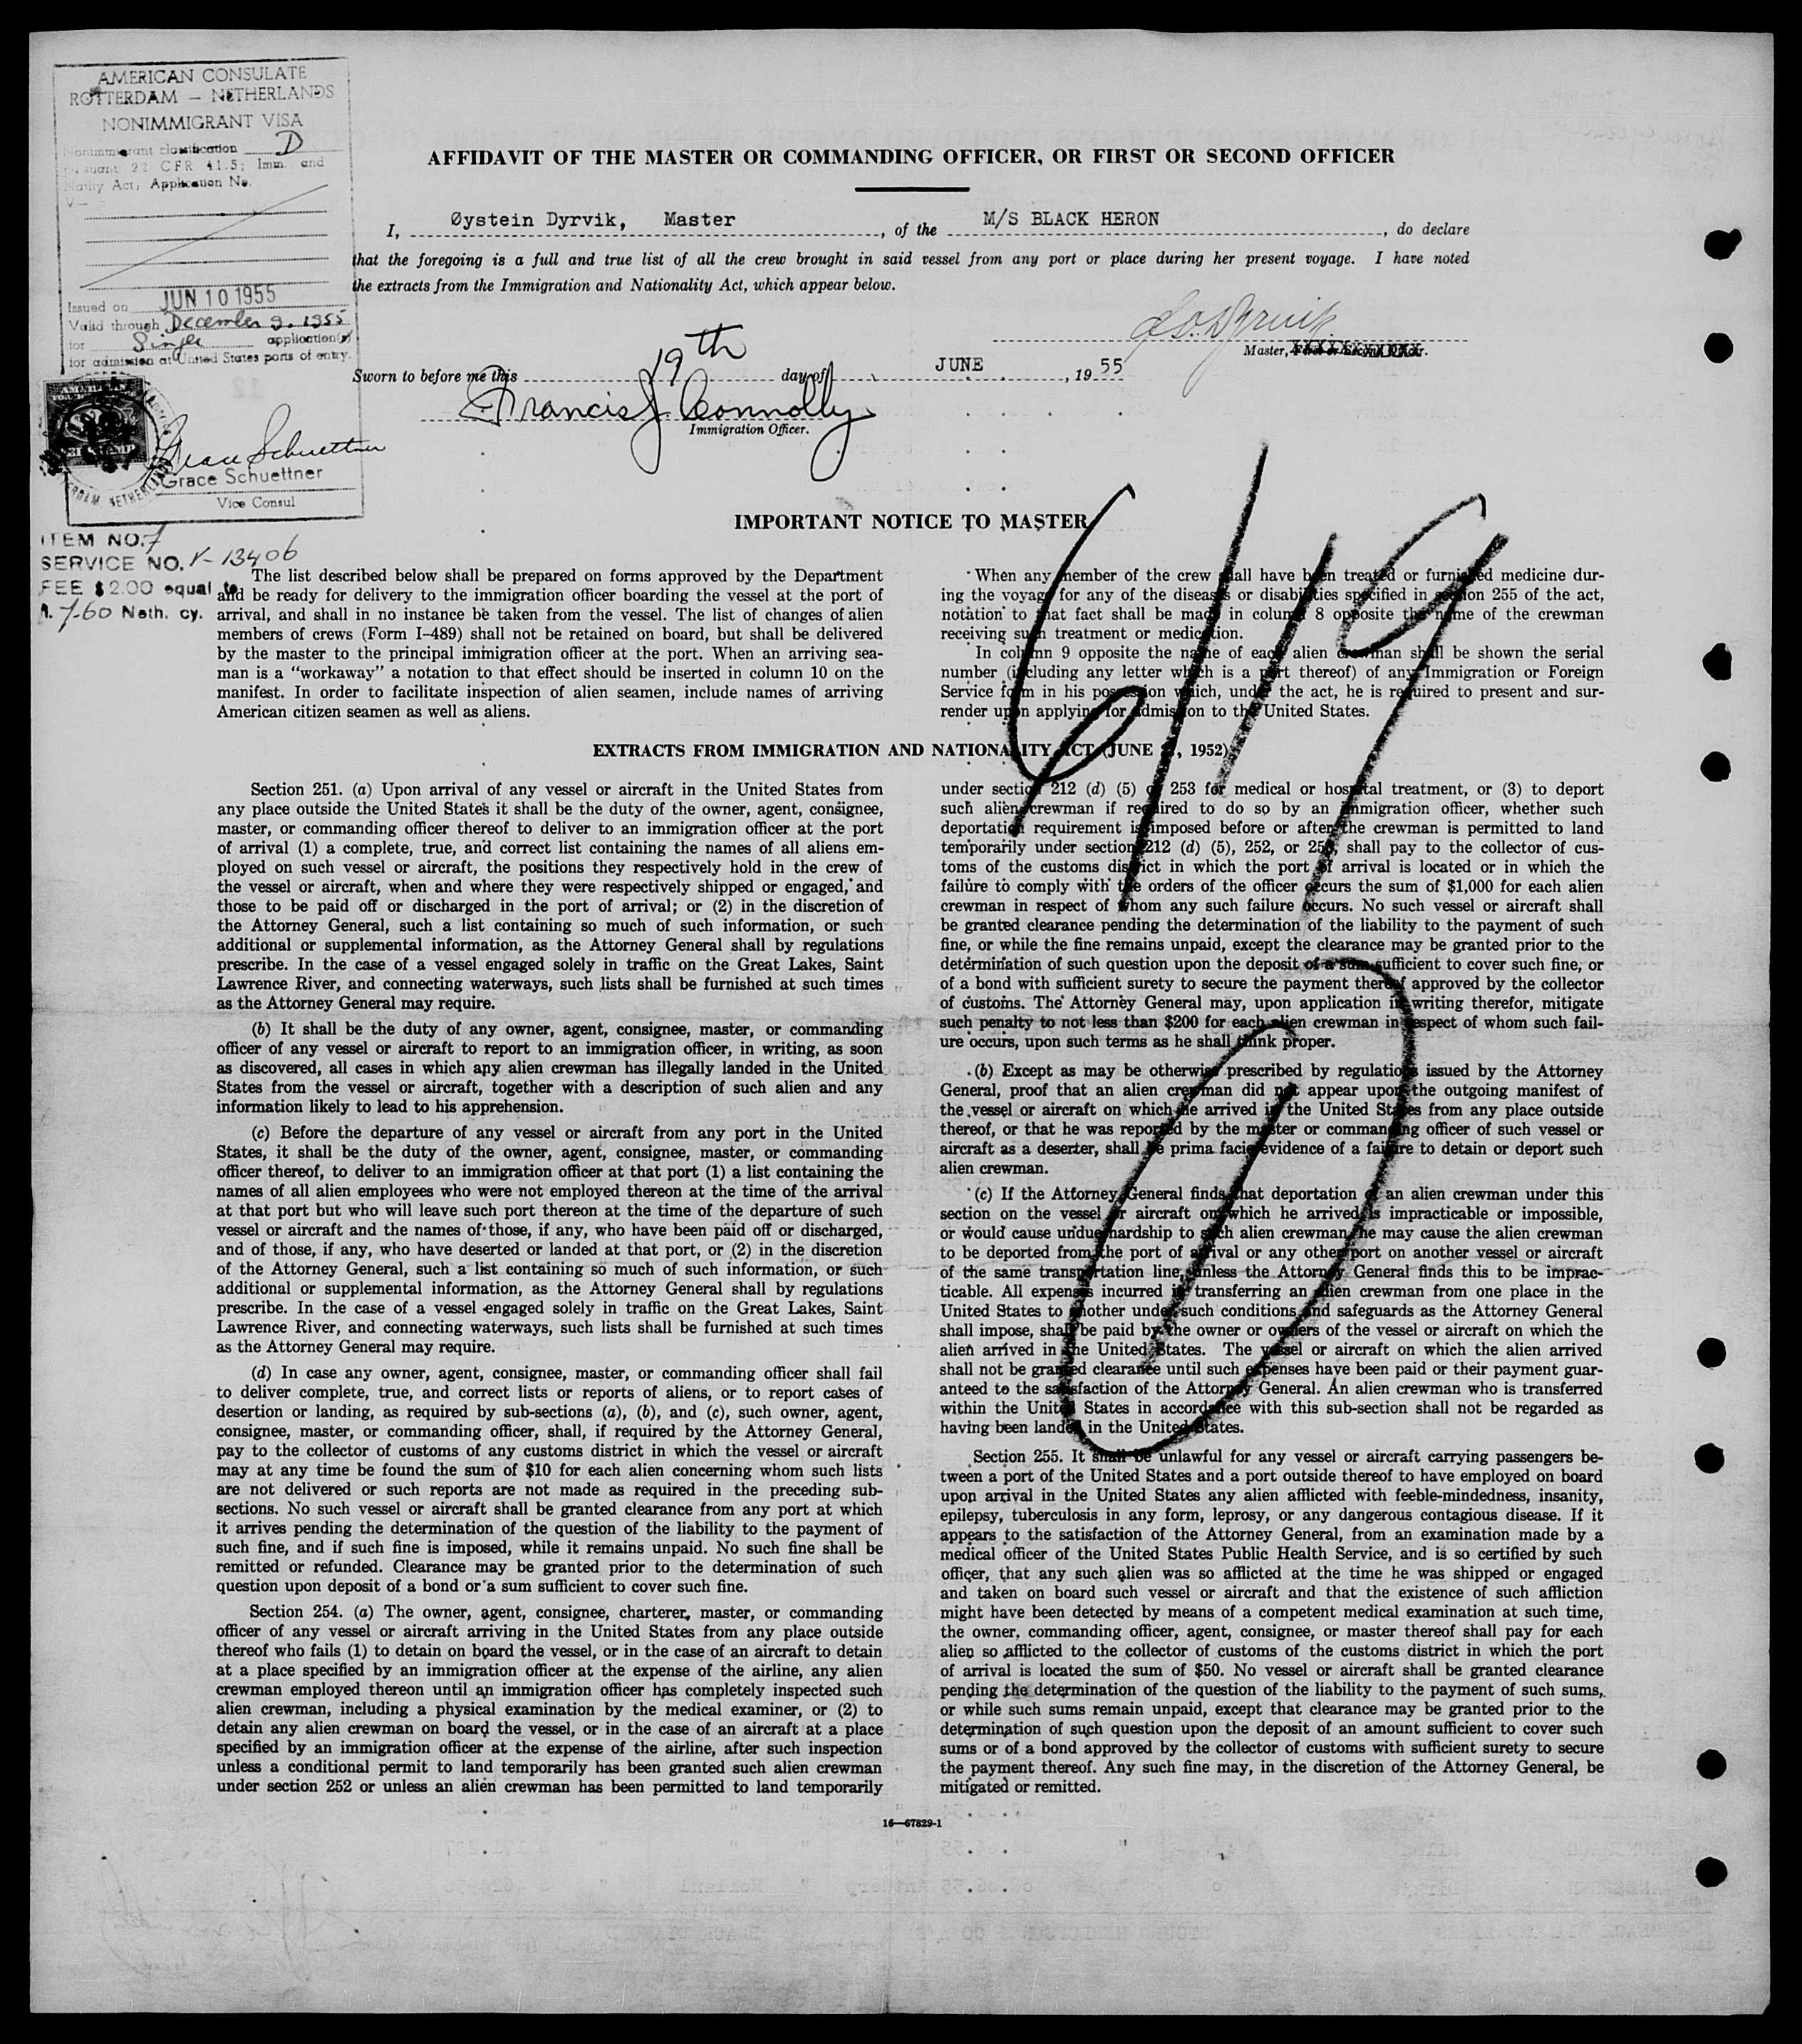 AMERICAN CONSULATE
ROTTERDAM — NETHERLANDS
NONIMMIGRANT VISA
Nonimmigrant classification D
pursuant 22 CFR 41.5; Imm. and
Natity Act, Application No.
V —
Issued on JUN 10 1955
Valid through December 9. 1955
for Single application(s)
for admission at United States ports of entry.
Grace Schuettner
Grace Schuettner
Vice Consul
ITEM NO. 7
SERVICE NO. V-13406
FEE $2.00 equal to
fl. 7.60 Neth. cy.
AFFIDAVIT OF THE MASTER OR COMMANDING OFFICER, OR FIRST OR SECOND OFFICER
I, Øystein Dyrvik, Master, of the M/S BLACK HERON, do declare
that the foregoing is a full and true list of all the crew brought in said vessel from any port or place during her present voyage. I have noted
the extracts from the Immigration and Nationality Act, which appear below.
Master, First or Second Officer.
Sworn to before me this 19th day of JUNE, 1955
Francis J. Connolly
Immigration Officer.
IMPORTANT NOTICE TO MASTER
The list described below shall be prepared on forms approved by the Department
and be ready for delivery to the immigration officer boarding the vessel at the port of
arrival, and shall in no instance be taken from the vessel. The list of changes of alien
members of crews (Form I–489) shall not be retained on board, but shall be delivered
by the master to the principal immigration officer at the port. When an arriving sea-
man is a “workaway” a notation to that effect should be inserted in column 10 on the
manifest. In order to facilitate inspection of alien seamen, include names of arriving
American citizen seamen as well as aliens.
When any member of the crew shall have been treated or furnished medicine dur-
ing the voyage for any of the diseases or disabilities specified in section 255 of the act,
notation to that fact shall be made in column 8 opposite the name of the crewman
receiving such treatment or medication.
In column 9 opposite the name of each alien crewman shall be shown the serial
number (including any letter which is a part thereof) of any Immigration or Foreign
Service form in his possession which, under the act, he is required to present and sur-
render upon applying for admission to the United States.
6/19
EXTRACTS FROM IMMIGRATION AND NATIONALITY ACT (JUNE 27, 1952)
Section 251. (a) Upon arrival of any vessel or aircraft in the United States from
any place outside the United States it shall be the duty of the owner, agent, consignee,
master, or commanding officer thereof to deliver to an immigration officer at the port
of arrival (1) a complete, true, and correct list containing the names of all aliens em-
ployed on such vessel or aircraft, the positions they respectively hold in the crew of
the vessel or aircraft, when and where they were respectively shipped or engaged, and
those to be paid off or discharged in the port of arrival; or (2) in the discretion of
the Attorney General, such a list containing so much of such information, or such
additional or supplemental information, as the Attorney General shall by regulations
prescribe. In the case of a vessel engaged solely in traffic on the Great Lakes, Saint
Lawrence River, and connecting waterways, such lists shall be furnished at such times
as the Attorney General may require.
(b) It shall be the duty of any owner, agent, consignee, master, or commanding
officer of any vessel or aircraft to report to an immigration officer, in writing, as soon
as discovered, all cases in which any alien crewman has illegally landed in the United
States from the vessel or aircraft, together with a description of such alien and any
information likely to lead to his apprehension.
(c) Before the departure of any vessel or aircraft from any port in the United
States, it shall be the duty of the owner, agent, consignee, master, or commanding
officer thereof, to deliver to an immigration officer at that port (1) a list containing the
names of all alien employees who were not employed thereon at the time of the arrival
at that port but who will leave such port thereon at the time of the departure of such
vessel or aircraft and the names of those, if any, who have been paid off or discharged,
and of those, if any, who have deserted or landed at that port, or (2) in the discretion
of the Attorney General, such a list containing so much of such information, or such
additional or supplemental information, as the Attorney General shall by regulations
prescribe. In the case of a vessel engaged solely in traffic on the Great Lakes, Saint
Lawrence River, and connecting waterways, such lists shall be furnished at such times
as the Attorney General may require.
(d) In case any owner, agent, consignee, master, or commanding officer shall fail
to deliver complete, true, and correct lists or reports of aliens, or to report cases of
desertion or landing, as required by sub-sections (a), (b), and (c), such owner, agent,
consignee, master, or commanding officer, shall, if required by the Attorney General,
pay to the collector of customs of any customs district in which the vessel or aircraft
may at any time be found the sum of $10 for each alien concerning whom such lists
are not delivered or such reports are not made as required in the preceding sub-
sections. No such vessel or aircraft shall be granted clearance from any port at which
it arrives pending the determination of the question of the liability to the payment of
such fine, and if such fine is imposed, while it remains unpaid. No such fine shall be
remitted or refunded. Clearance may be granted prior to the determination of such
question upon deposit of a bond or a sum sufficient to cover such fine.
Section 254. (a) The owner, agent, consignee, charterer, master, or commanding
officer of any vessel or aircraft arriving in the United States from any place outside
thereof who fails (1) to detain on board the vessel, or in the case of an aircraft to detain
at a place specified by an immigration officer at the expense of the airline, any alien
crewman employed thereon until an immigration officer has completely inspected such
alien crewman, including a physical examination by the medical examiner, or (2) to
detain any alien crewman on board the vessel, or in the case of an aircraft at a place
specified by an immigration officer at the expense of the airline, after such inspection
unless a conditional permit to land temporarily has been granted such alien crewman
under section 252 or unless an alien crewman has been permitted to land temporarily
under section 212 (d) (5) or 253 for medical or hospital treatment, or (3) to deport
such alien crewman if required to do so by an immigration officer, whether such
deportation requirement is imposed before or after the crewman is permitted to land
temporarily under section 212 (d) (5), 252, or 253, shall pay to the collector of cus-
toms of the customs district in which the port of arrival is located or in which the
failure to comply with the orders of the officer occurs the sum of $1,000 for each alien
crewman in respect of whom any such failure occurs. No such vessel or aircraft shall
be granted clearance pending the determination of the liability to the payment of such
fine, or while the fine remains unpaid, except the clearance may be granted prior to the
determination of such question upon the deposit of a sum sufficient to cover such fine, or
of a bond with sufficient surety to secure the payment thereof approved by the collector
of customs. The Attorney General may, upon application in writing therefor, mitigate
such penalty to not less than $200 for each alien crewman in respect of whom such fail-
ure occurs, upon such terms as he shall think proper.
(b) Except as may be otherwise prescribed by regulations issued by the Attorney
General, proof that an alien crewman did not appear upon the outgoing manifest of
the vessel or aircraft on which he arrived in the United States from any place outside
thereof, or that he was reported by the master or commanding officer of such vessel or
aircraft as a deserter, shall be prima facie evidence of a failure to detain or deport such
alien crewman.
(c) If the Attorney General finds that deportation of an alien crewman under this
section on the vessel or aircraft on which he arrived is impracticable or impossible,
or would cause undue hardship to such alien crewman, he may cause the alien crewman
to be deported from the port of arrival or any other port on another vessel or aircraft
of the same transportation line, unless the Attorney General finds this to be imprac-
ticable. All expenses incurred in transferring an alien crewman from one place in the
United States to another under such conditions and safeguards as the Attorney General
shall impose, shall be paid by the owner or owners of the vessel or aircraft on which the
alien arrived in the United States. The vessel or aircraft on which the alien arrived
shall not be granted clearance until such expenses have been paid or their payment guar-
anteed to the satisfaction of the Attorney General. An alien crewman who is transferred
within the United States in accordance with this sub-section shall not be regarded as
having been landed in the United States.
Section 255. It shall be unlawful for any vessel or aircraft carrying passengers be-
tween a port of the United States and a port outside thereof to have employed on board
upon arrival in the United States any alien afflicted with feeble-mindedness, insanity,
epilepsy, tuberculosis in any form, leprosy, or any dangerous contagious disease. If it
appears to the satisfaction of the Attorney General, from an examination made by a
medical officer of the United States Public Health Service, and is so certified by such
officer, that any such alien was so afflicted at the time he was shipped or engaged
and taken on board such vessel or aircraft and that the existence of such affliction
might have been detected by means of a competent medical examination at such time,
the owner, commanding officer, agent, consignee, or master thereof shall pay for each
alien so afflicted to the collector of customs of the customs district in which the port
of arrival is located the sum of $50. No vessel or aircraft shall be granted clearance
pending the determination of the question of the liability to the payment of such sums,
or while such sums remain unpaid, except that clearance may be granted prior to the
determination of such question upon the deposit of an amount sufficient to cover such
sums or of a bond approved by the collector of customs with sufficient surety to secure
the payment thereof. Any such fine may, in the discretion of the Attorney General, be
mitigated or remitted.
16—67829-1